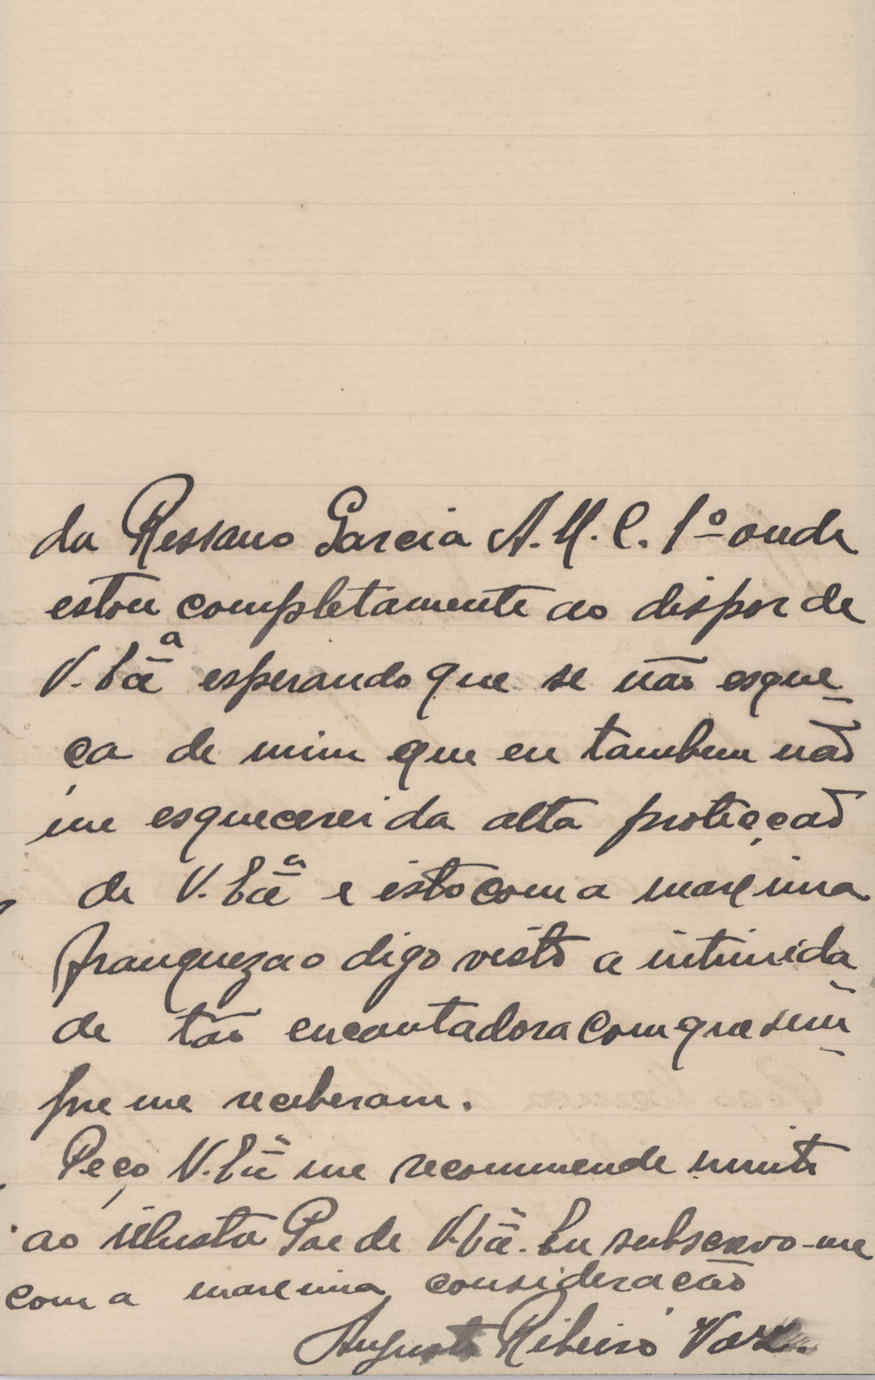 da Ressano Garcia A.M.C. 1º onde
estou completamente ao dispor de
V. Exª esperando que se não esque-
ça de mim que eu tambem não
me esquecerei da alta protecção
de V. Exª e isto com a maxima
franqueza o digo visto a intimida-
de tão encantadora com que sem-
pre me receberam.
Peço V. Exª me recommende muito
ao illustre Pae de V. Exª. Eu subscrevo-me
com a maxima consideração
Augusto Ribeiro Vaz.